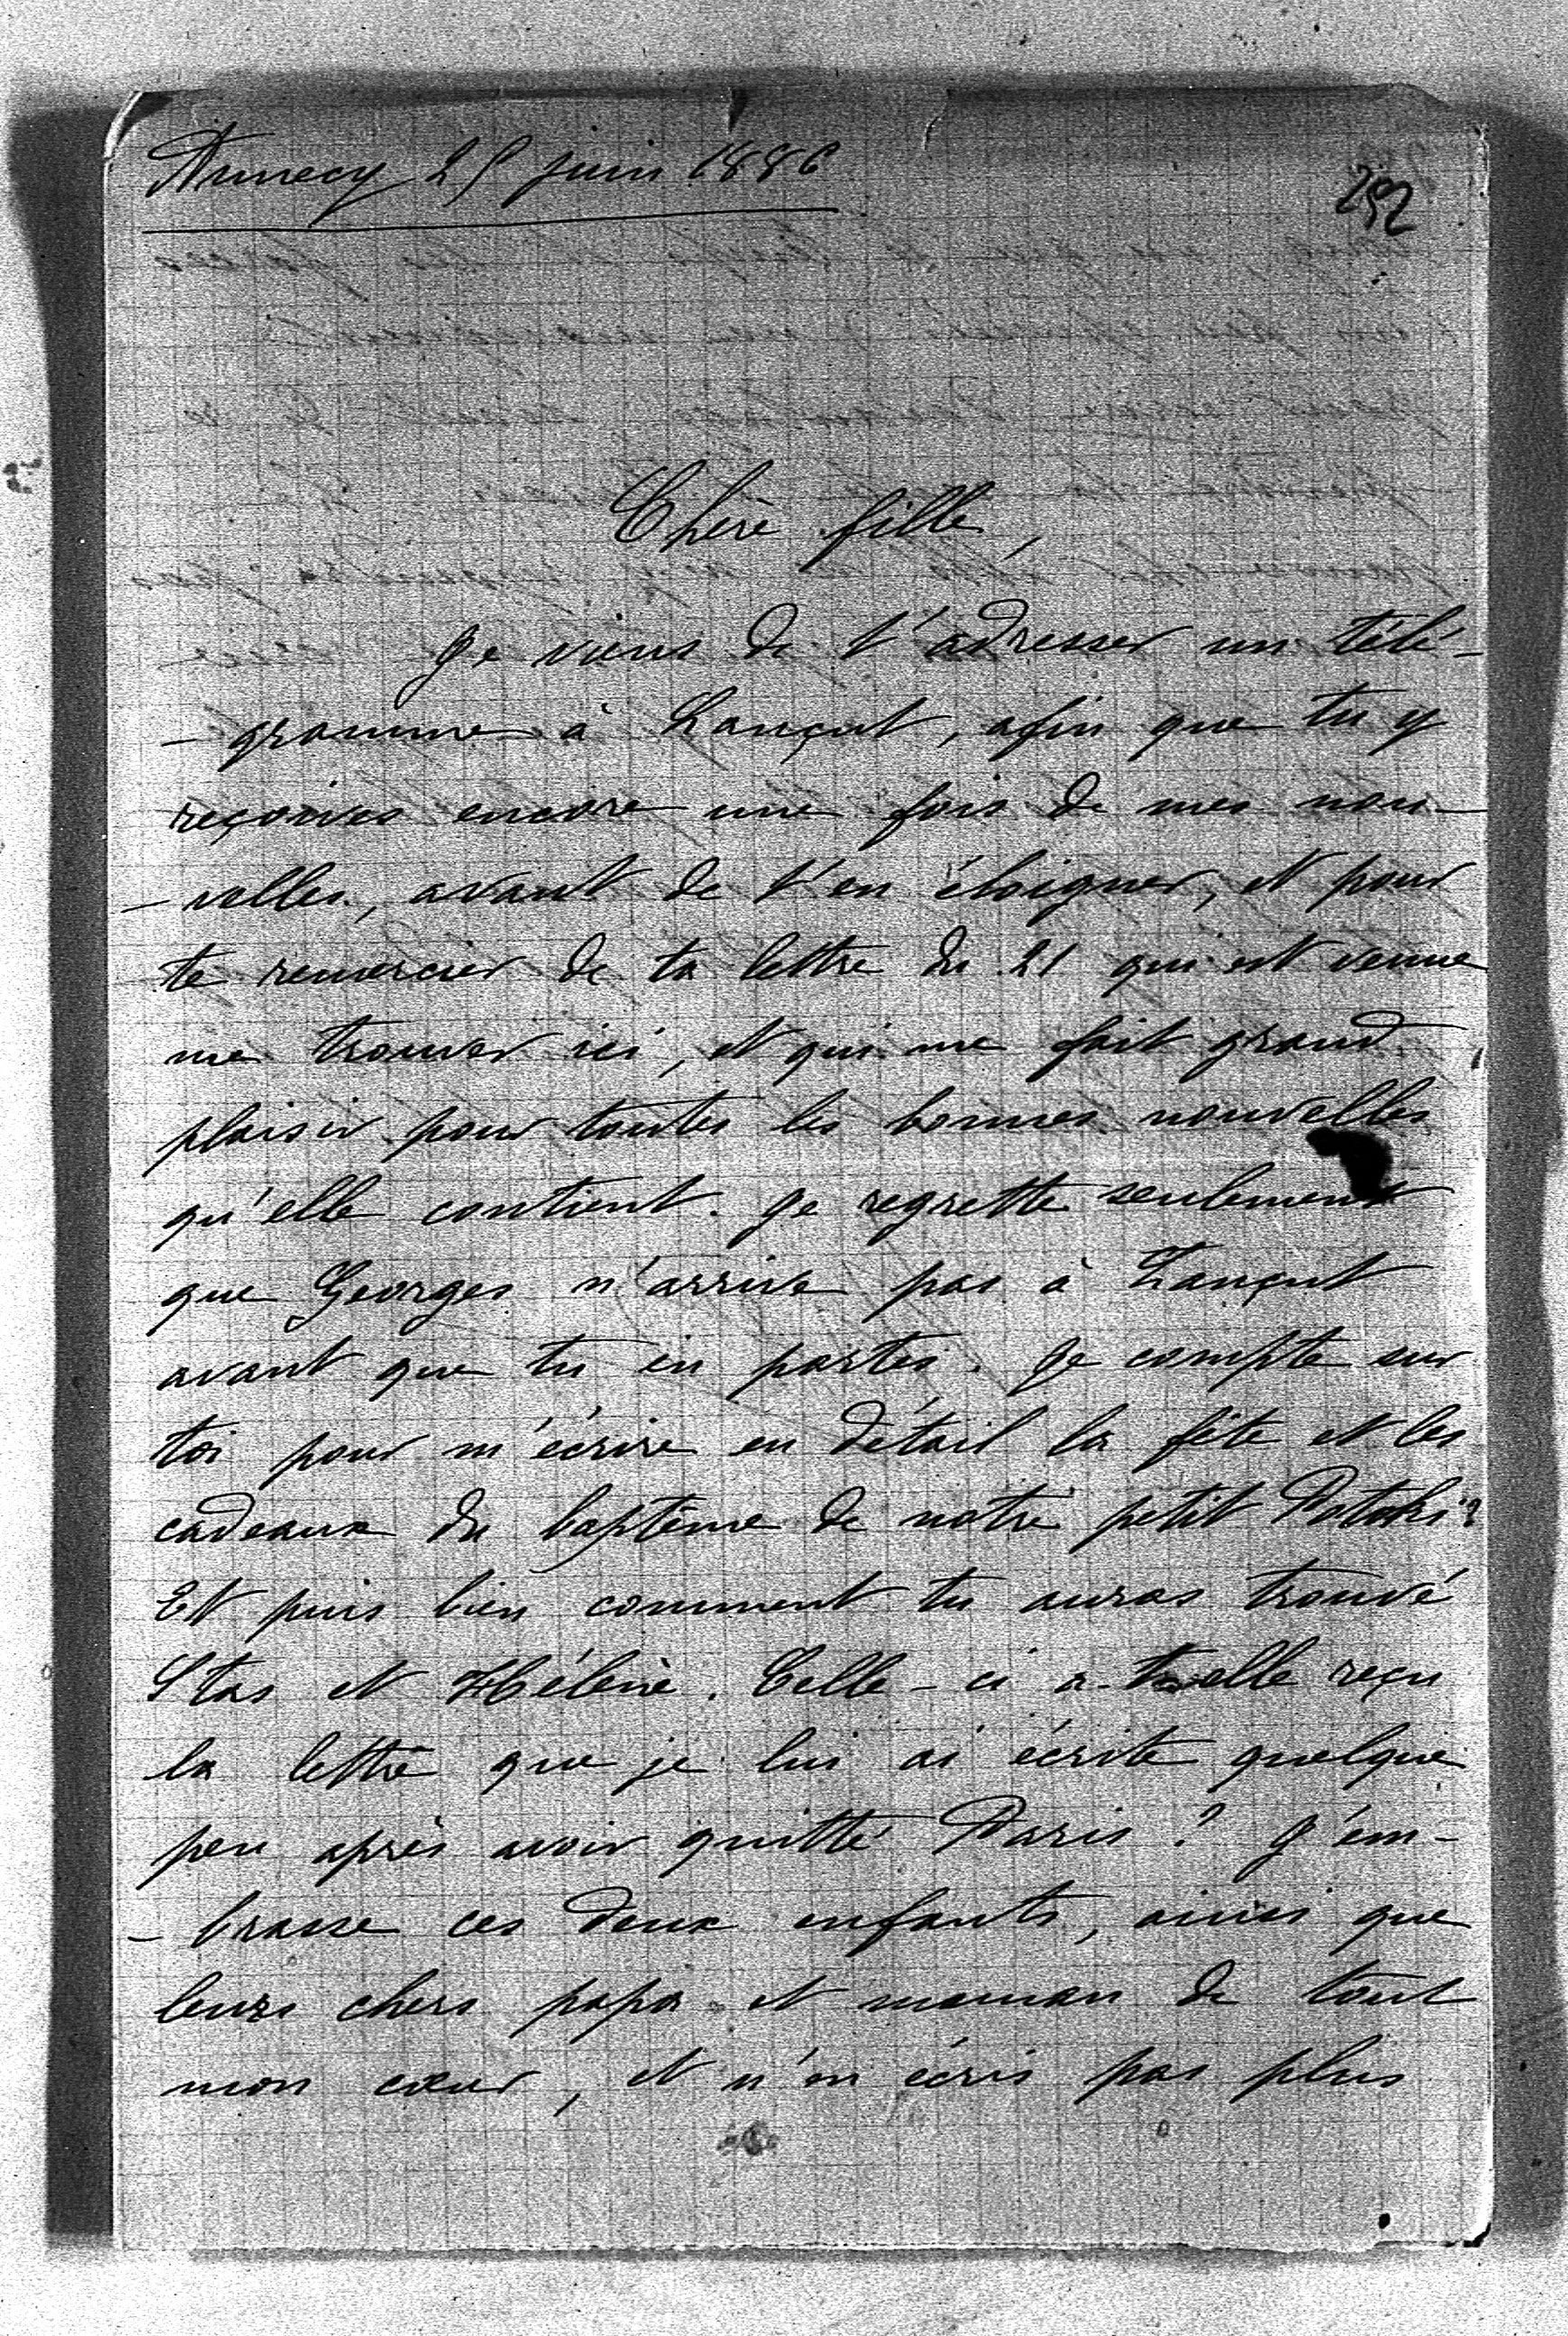 Annecy 25 juin 1886
252
Chère fille,
Je viens de t'adresser un télé-
-gramme à Lançut, afin que tu y
reçoives encore une fois de mes nou-
-velles, avant de t'en éloigner, et pour
te remercier de ta lettre du 21 qui est venue
me trouver ici, et qui me fait grand
plaisir pour toutes les bonnes nouvelles
qu'elle contient. Je regrette seulement
que Georges n'arrive pas à Lançut
avant que tu en partes. Je compte sur
toi pour m'écrire en détail la fête et les
cadeaux du baptême de notre petit Potocki?
Et puis bien comment tu auras trouvé
Stas et Hélène. Celle-ci a-t-elle reçu
la lettre que je lui ai écrite quelque
peu après avoir quitté Paris? J'em-
-brasse ces deux enfants, ainsi que
leurs chers papa et maman de tout
mon cœur, et n'en écris pas plus